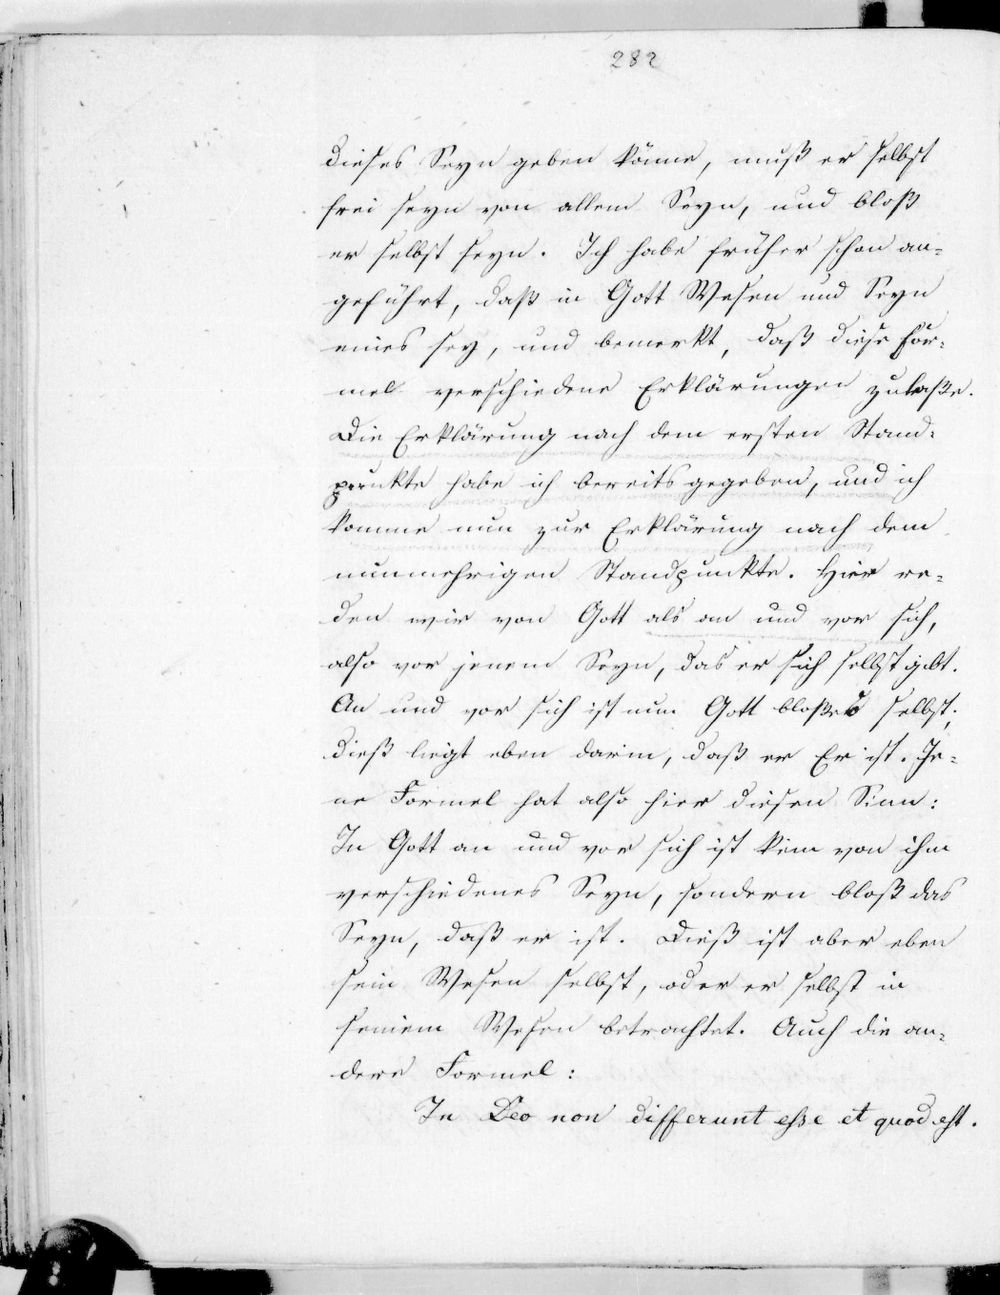 282
dieses Seyn geben könne, muß er selbst
frei seyn von allem Seyn, und bloß
er selbst seyn. Ich habe früher schon an-
geführt, daß in Gott Wesen und Seyn
eines sey, und bemerkt, daß diese For-
mel verschiedene Erklärungen zulaße.
Die Erklärung nach dem ersten Stand-
punkte habe ich bereits gegeben, und ich
komme nun zur Erklärung nach dem
nunmehrigen Standpunkte. Hier re-
den wir von Gott als an und vor sich,
also vor jenem Seyn, das er sich selbst gibt.
An und vor sich ist nun Gott bloß Er selbst;
dieß liegt eben darin, daß er Er ist. Je-
ne Formel hat also hier diesen Sinn:
In Gott an und vor sich ist kein von ihm
verschiedenes Seyn, sondern bloß das
Seyn, daß er ist. Dieß ist aber eben
sein Wesen selbst, oder er selbst in
seinem Wesen betrachtet. Auch die an-
dere Formel:
In Deo non differunt esse et quod est.